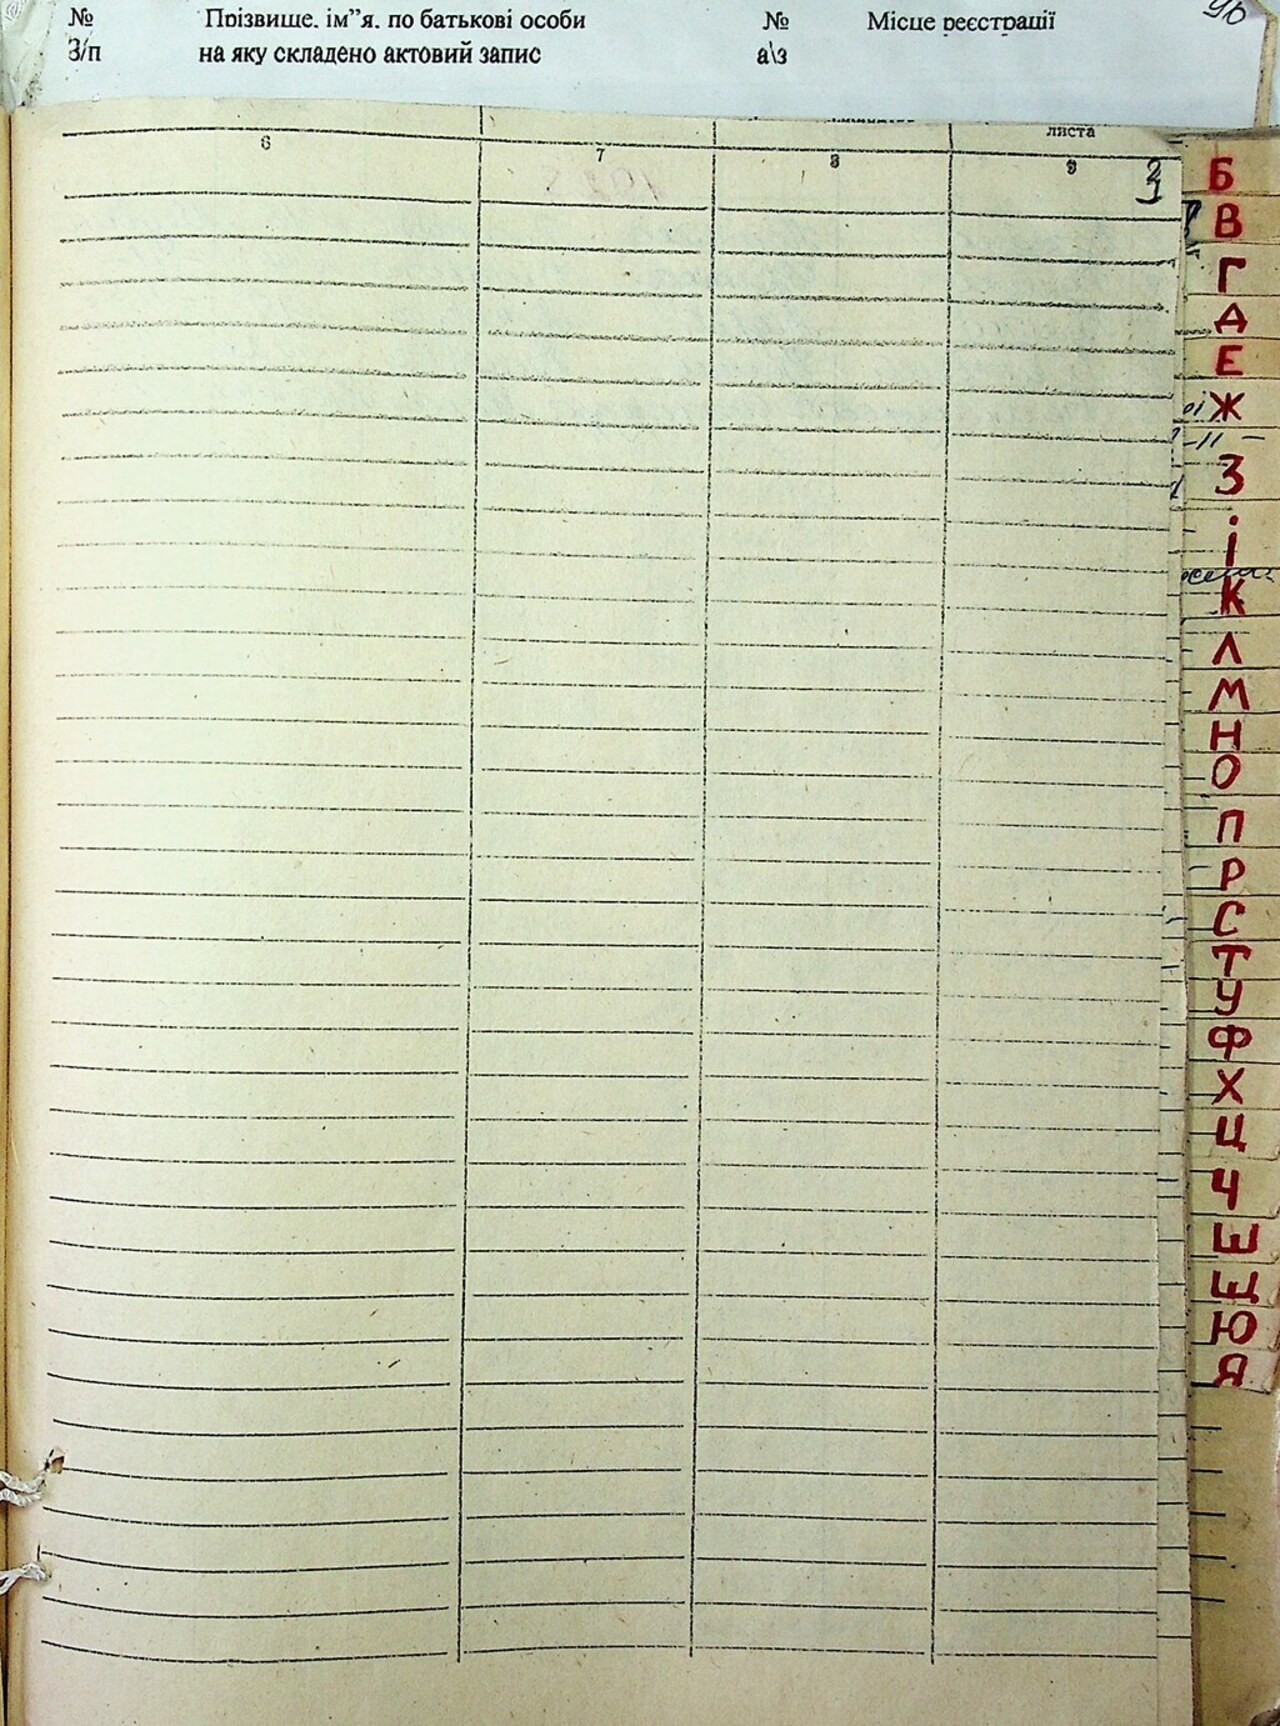 № Прізвище, ім”я, по батькові особи № Місце реєстрації 96
З/п на яку складено актовий запис а\з
листа
6 7 8 9
Б
В
Г
Д
Е
Ж
-11-
З
і
К
Л
М
Н
О
П
Р
С
Т
У
Ф
Х
Ц
Ч
Ш
Щ
Ю
Я